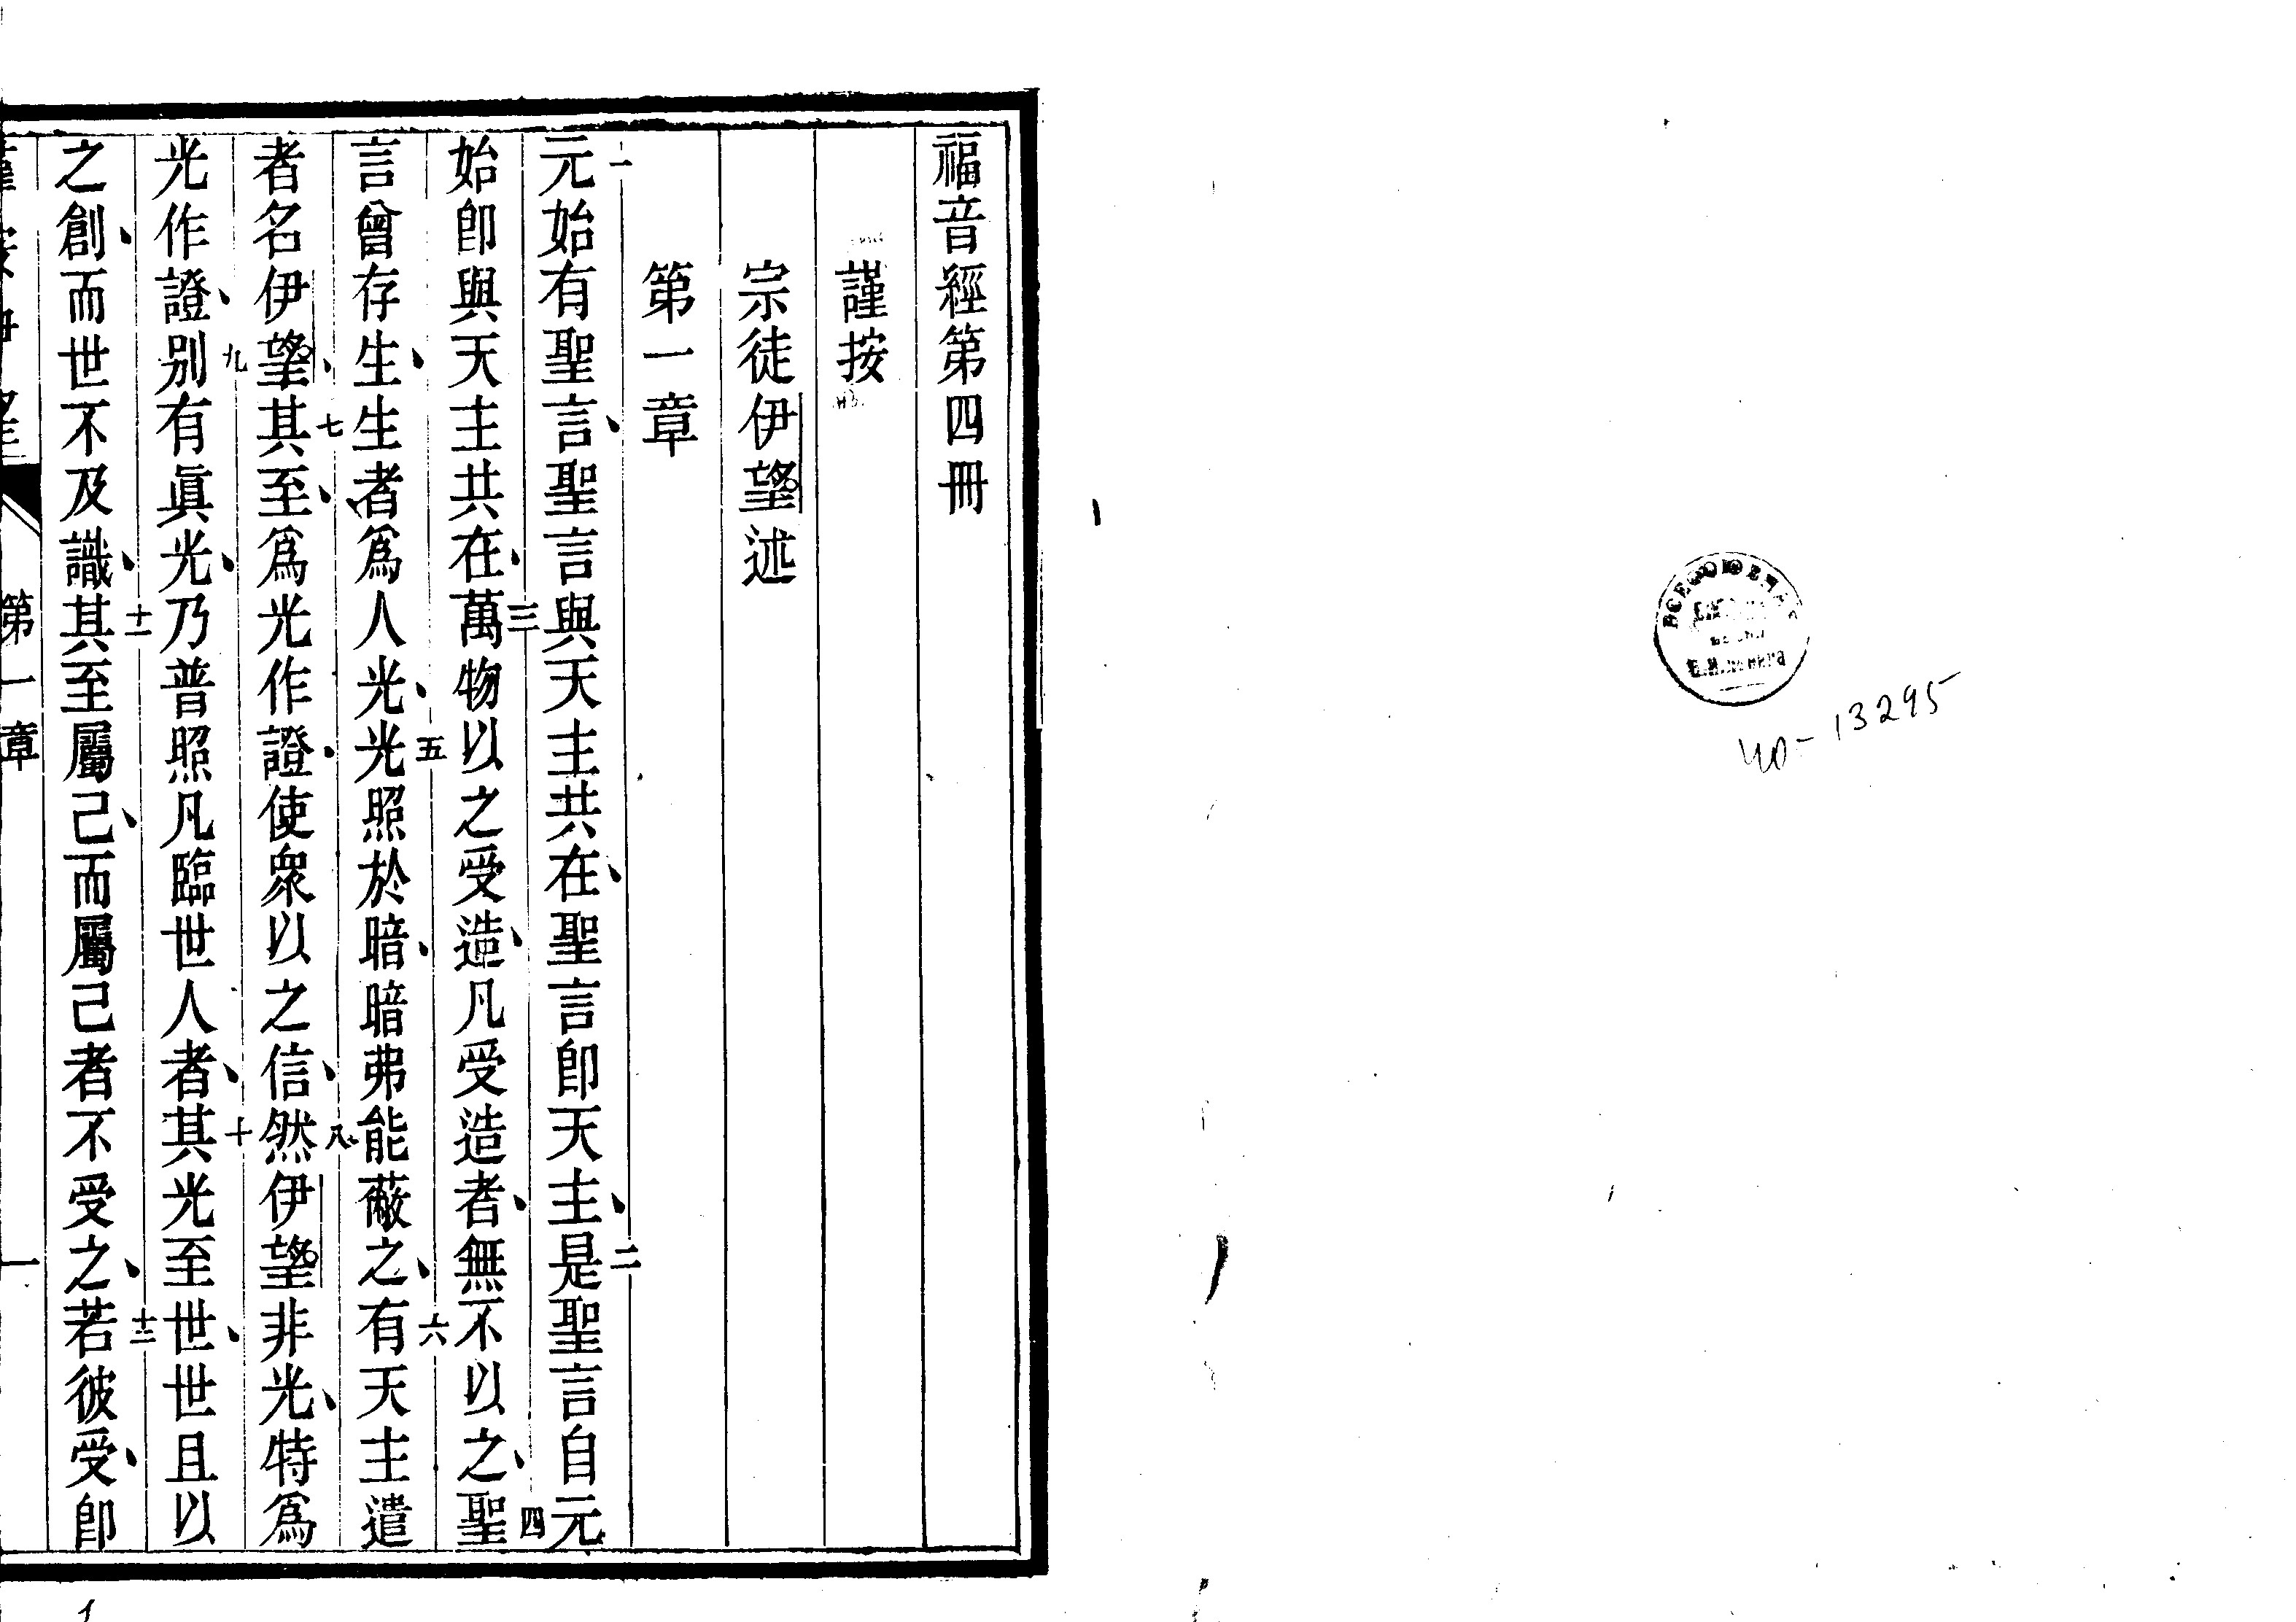 福音經第四冊
謹按
宗徒伊望述
第一章
一元始有聖言、聖言與天主共在、聖言即天主、二是聖言自元
始即與天主共在、三萬物以之受造、凡受造者、無不以之、四聖
言曾存生、生者爲人光、五光照於暗、暗弗能蔽之、六有天主遣
者名伊望、七其至、爲光作證、使衆以之信、八然伊望非光、特爲
光作證、九別有眞光、乃普照凡臨世人者、十其光至世、世且以
之創、而世不及識、十一其至屬己、而屬己者不受之、十二若彼受、即
第一章
一
40-13295
1